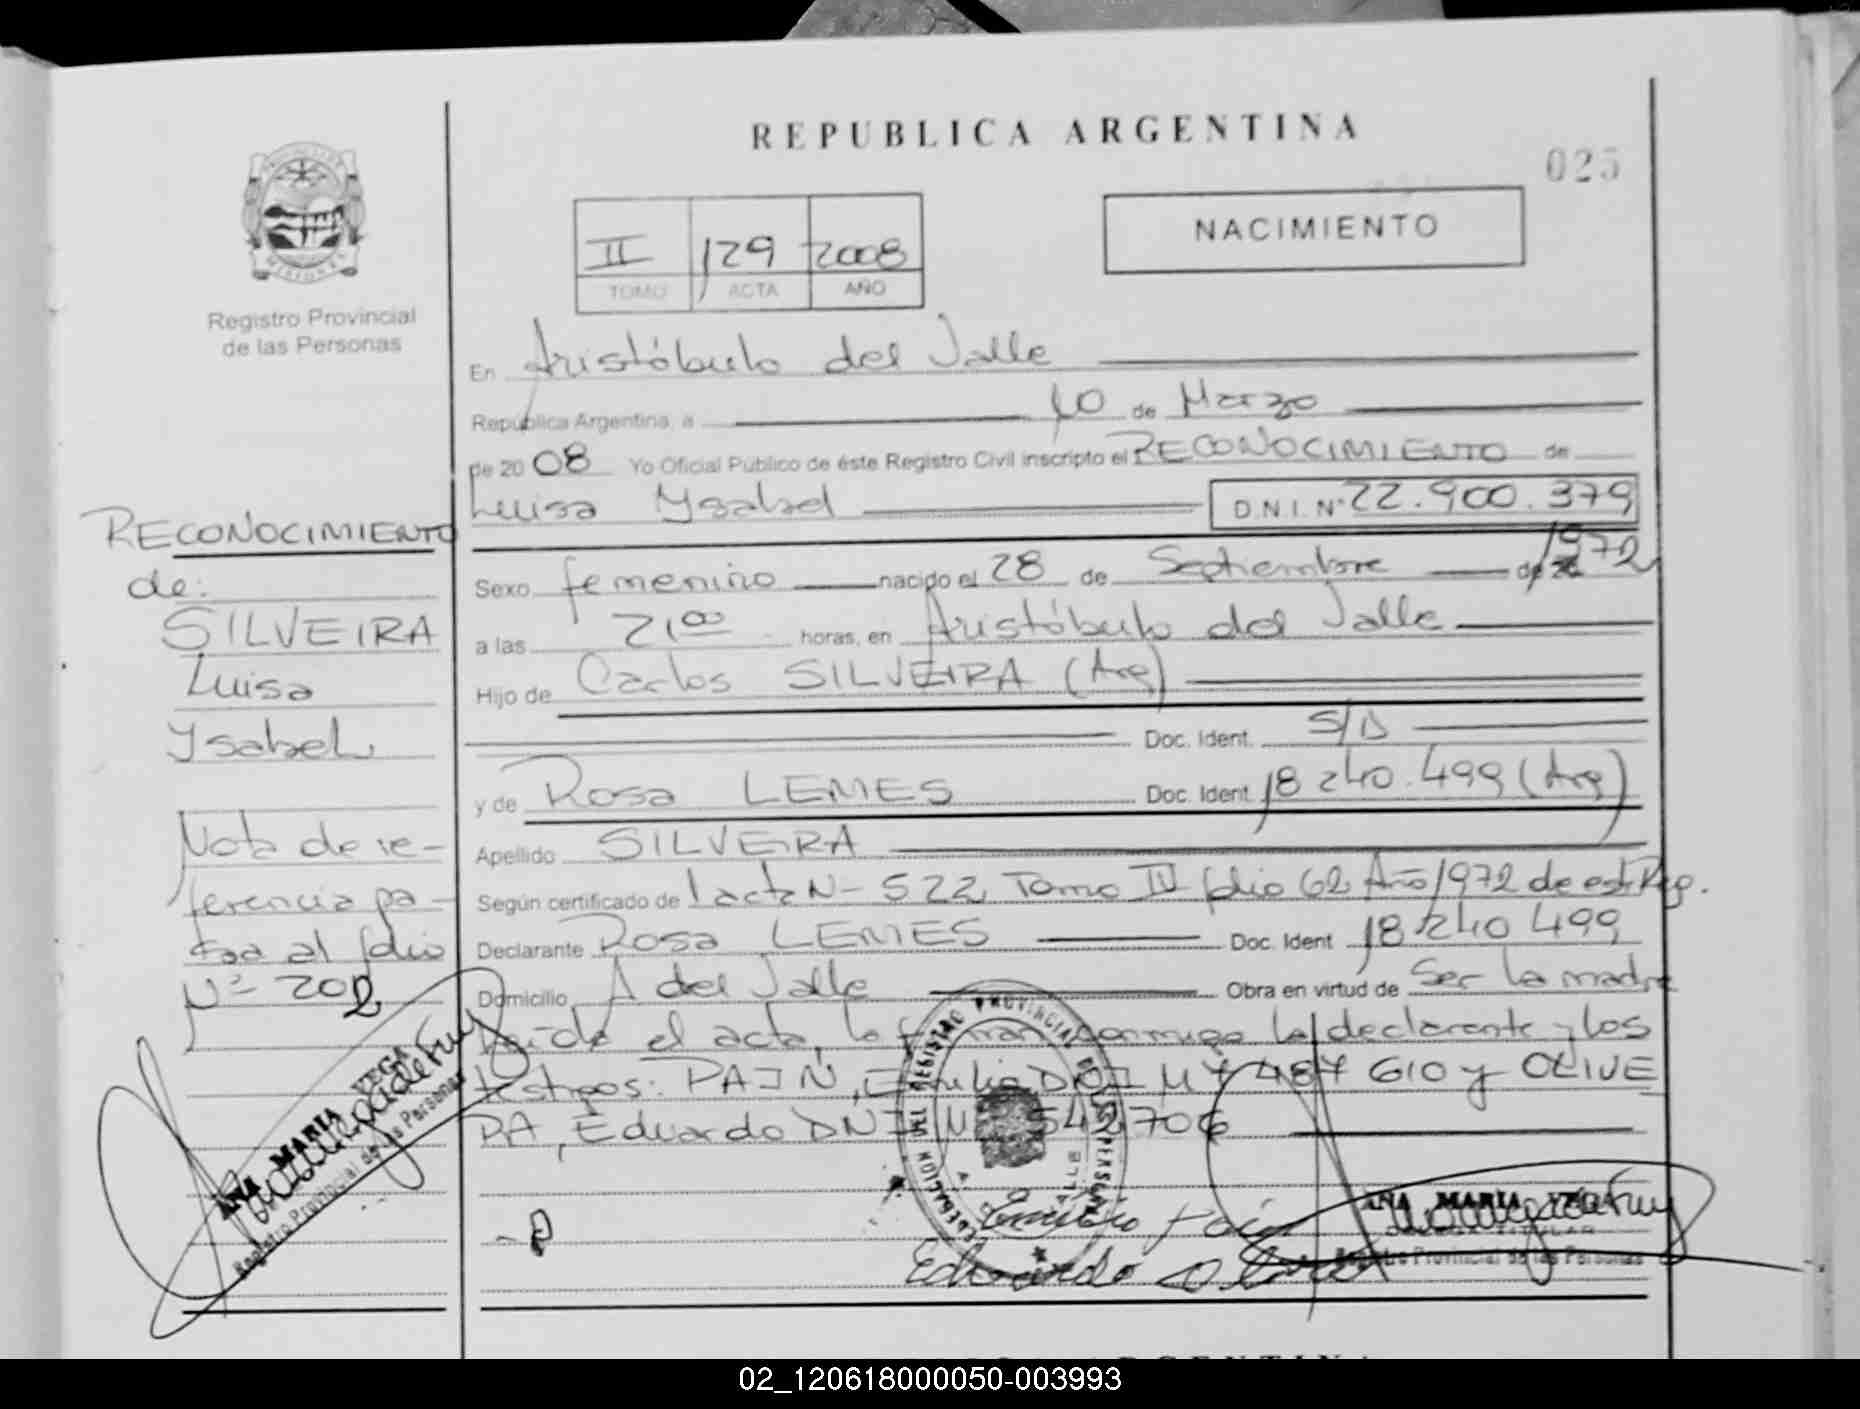 REPUBLICA ARGENTINA
025
NACIMIENTO
II 129 2008
TOMO ACTA AÑO
Registro Provincial
de las Personas
En Aristóbulo del Valle
República Argentina, a 10 de Marzo
de 2008 Yo Oficial Público de éste Registro Civil inscripto el RECONOCIMIENTO de
Luisa Ysabel D.N.I. Nº 22.900.379
Sexo femenino nacido el 28 de Septiembre de 1972
a las 21⁰⁰ horas, en Aristóbulo del Valle
Hijo de Carlos SILVEIRA (Arg)
Doc. Ident. S/D
y de Rosa LEMES Doc. Ident. 18 240.499 (Arg)
Apellido SILVEIRA
Según certificado de 1 acta N- 522 Tomo IV folio 62 Año 1972 de est. Reg.
Declarante Rosa LEMES Doc. Ident 18 240 499
Domicilio A del Valle Obra en virtud de Ser la madre
Leída el acta, la firman conmigo la declarante y los
testigos: PAIN, Emilio DNI M7 487 610 y OLIVE
RA, Eduardo DNI 542706
RECONOCIMIENTO
de:
SILVEIRA
Luisa
Ysabel
Nota de re-
ferencia pa-
sa al folio
Nº 202
ANA MARIA VEGA
Registro Provincial de las Personas
Emilio Pain
Eduardo Olivera
ANA MARIA VEGA
TITULAR
Registro Provincial de las Personas
02_120618000050-003993